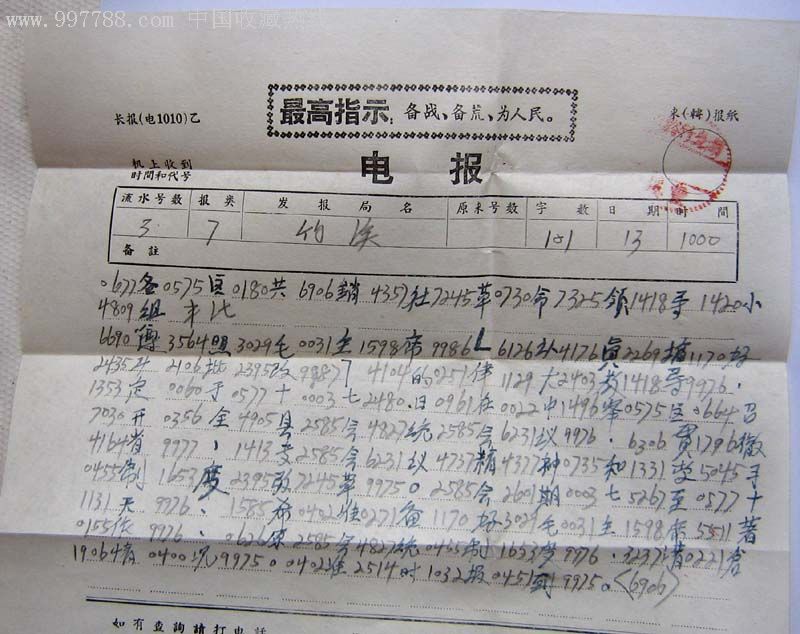 www.997788.com 中国收藏热线
最高指示:备战、备荒、为人民。
长报(电1010)乙
来(转)报纸
机上收到
时间和代号
电 报
流水号数 报类 发报局名 原来号数 字数 日期 时间
3 7 竹溪 101 13 1000
备註
0677各0575区0180共6906銷4357社7245革0730命7325领1418导1420小
4809组
3564照3029毛0031主1598席9986 6126补4176真2269 1170好
2435斗2106批2395改9987 4104的0251伟1129大2403教1418导9976,
1353定0060于0577十0003七2480日0961在0022中1496峯0575区0664召
7030开0356全4905县2585会4827统2585会6231议9976. 6306贯1796徹
4164省9977、1413专2585会6231议4737精4377神0735和 5045
0455制1653度2395改7245革9975。2585会2601期0003七5267至0577十
1131天9976. 1585希0402准0271备1170好3029毛0031主1598席5511著
0155作9976. 2585会4827统0455制1653度9976. 3237
0400况9975。0402准2514时1032报0451到9975。(6906)
如有查詢請打电話